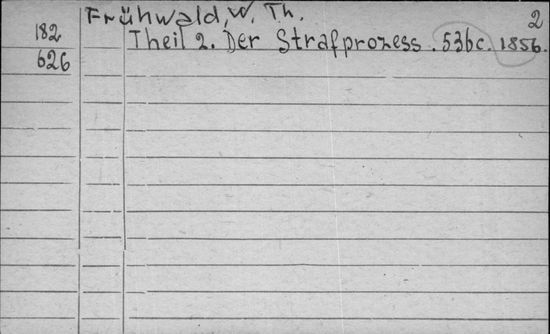 Frühwald, W. Th. 2
182 Theil 2. Der Strafprozess. 536 c. 1856.
626